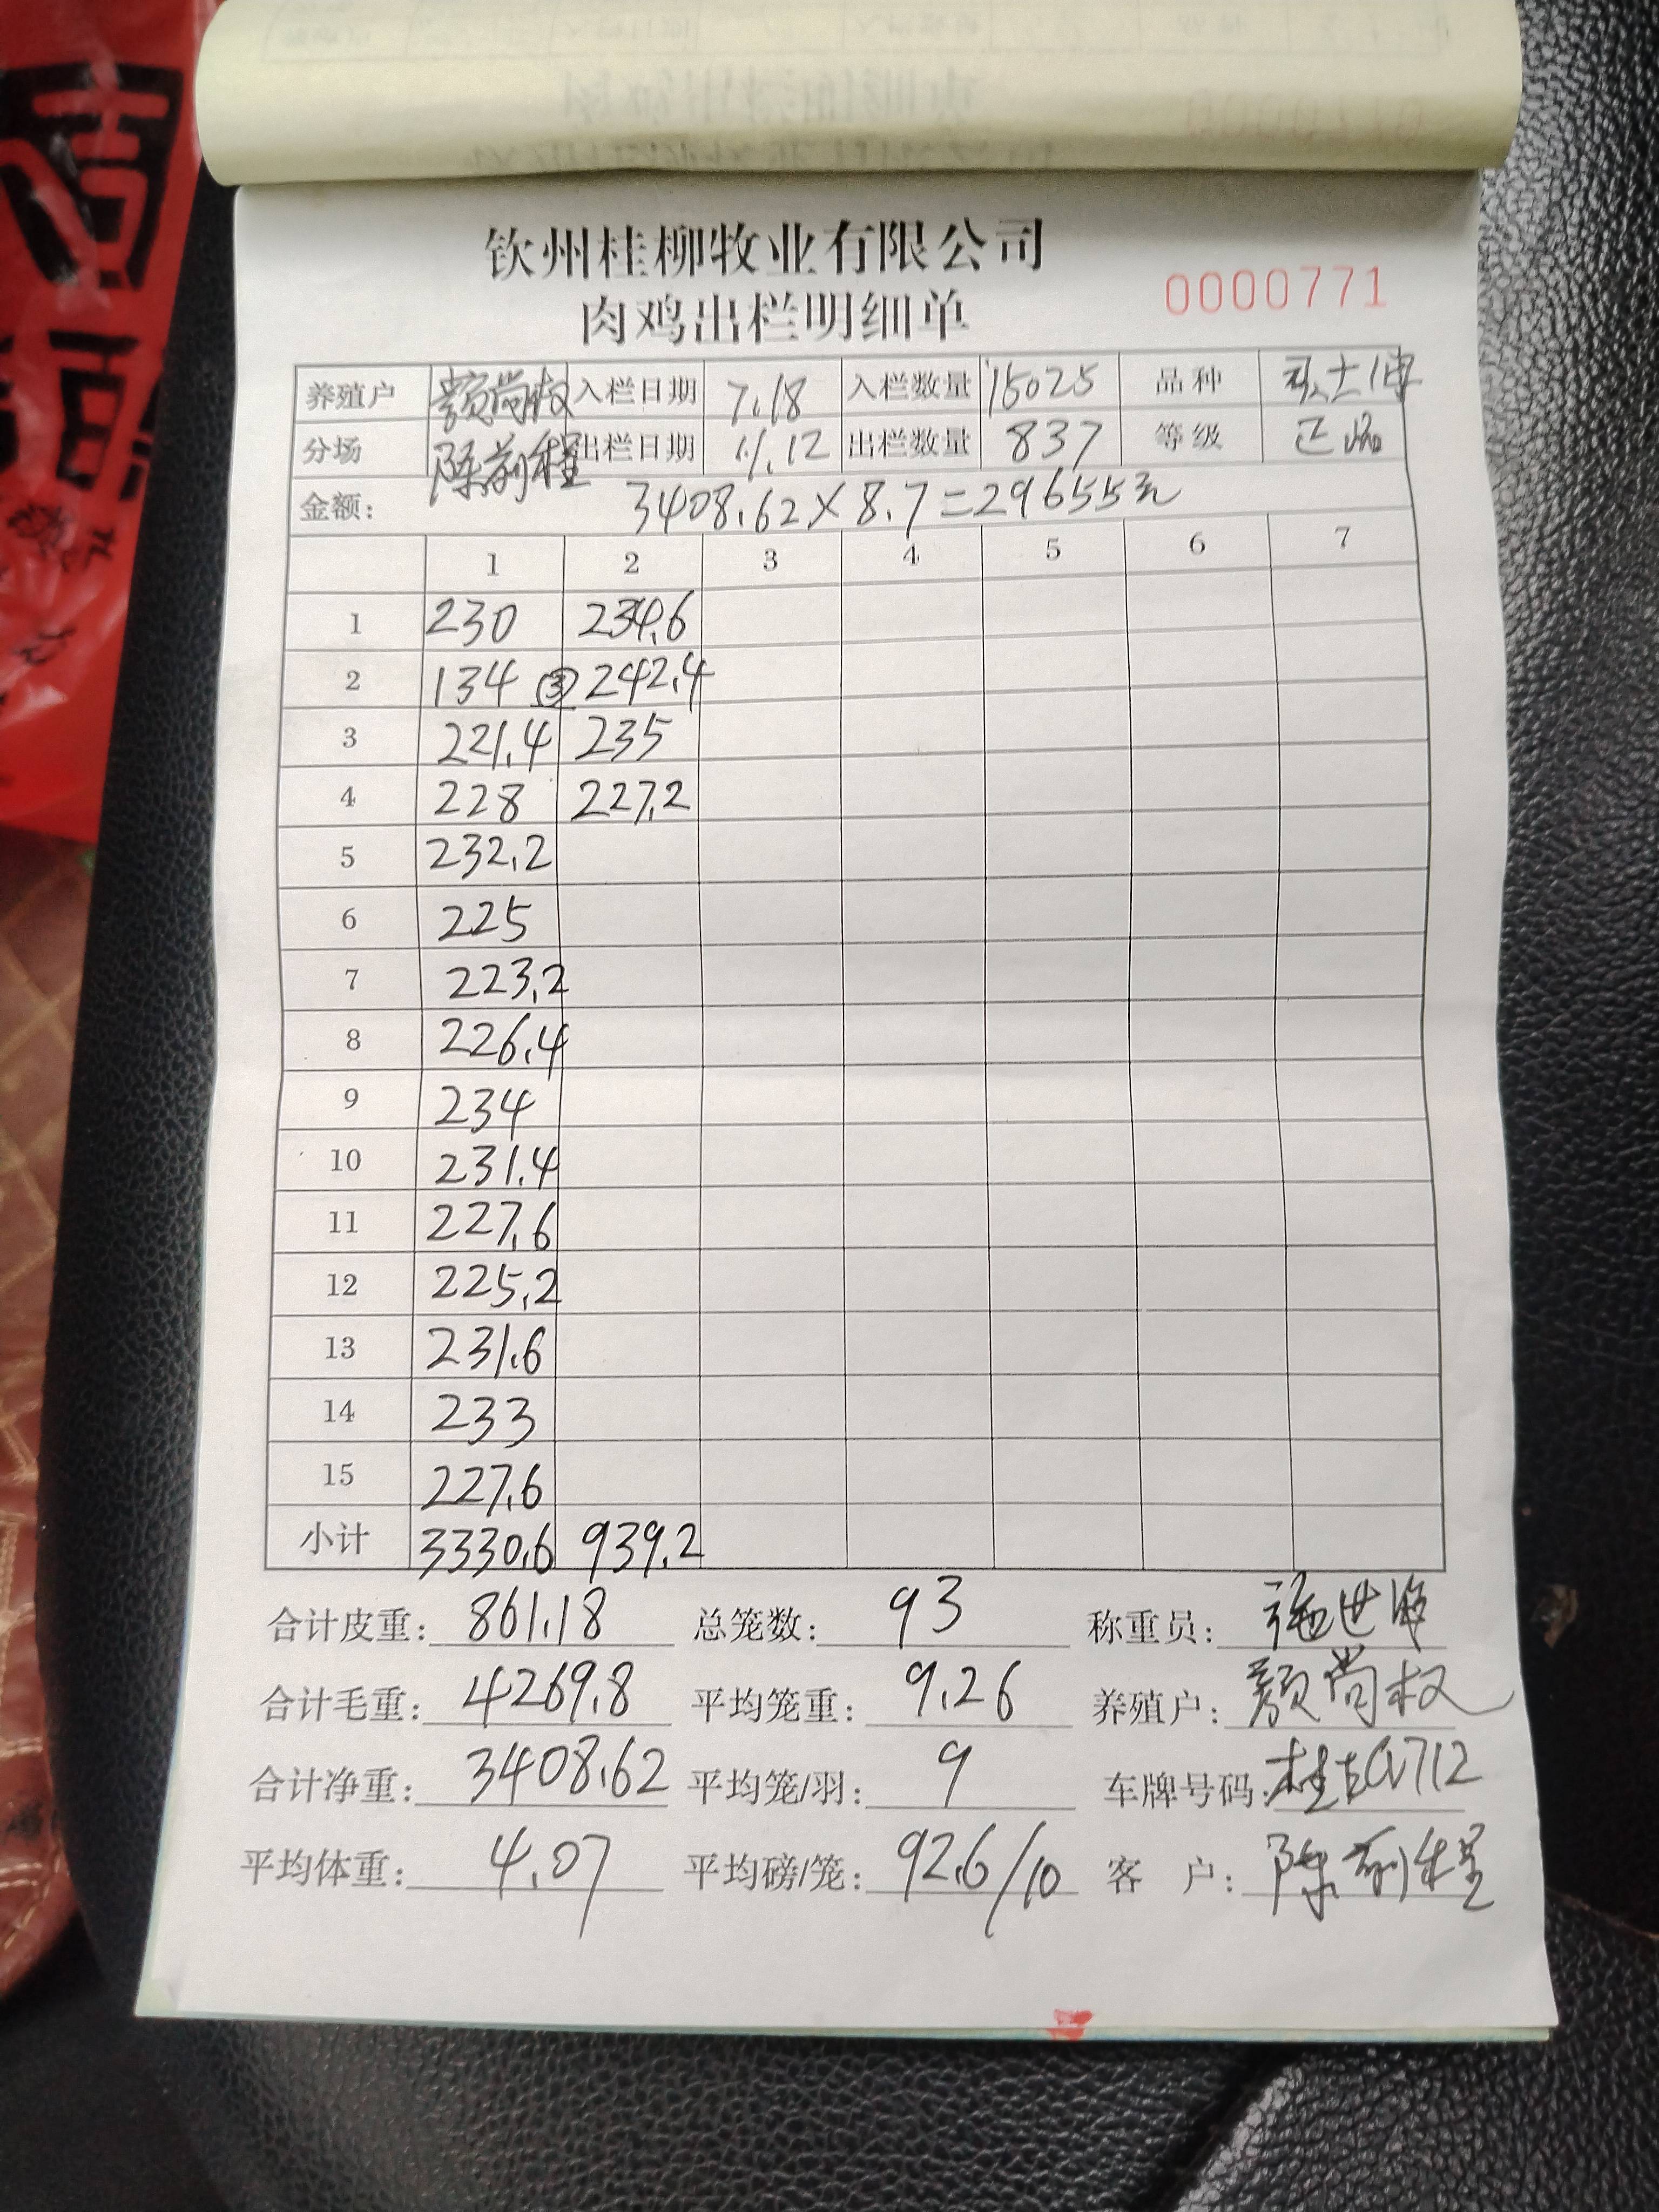 钦州桂柳牧业有限公司
肉鸡出栏明细单
0000771
养殖户 颜尚权 入栏日期 7.18 入栏数量 15025 品种
分场 陈前程 出栏日期 11.12 出栏数量 837 等级 正品
金额: 3408.62×8.7=29655元
1 2 3 4 5 6 7
1 230 234.6
2 134 ③ 242.4
3 221.4 235
4 228 227.2
5 232.2
6 225
7 223.2
8 226.4
9 234
10 231.4
11 227.6
12 225.2
13 231.6
14 233
15 227.6
小计 3330.6 939.2
合计皮重: 861.18 总笼数: 93 称重员:
合计毛重: 4269.8 平均笼重: 9.26 养殖户: 颜尚权
合计净重: 3408.62 平均笼/羽: 9 车牌号码:
平均体重: 4.07 平均磅/笼: 92.6/10 客 户: 陈前程